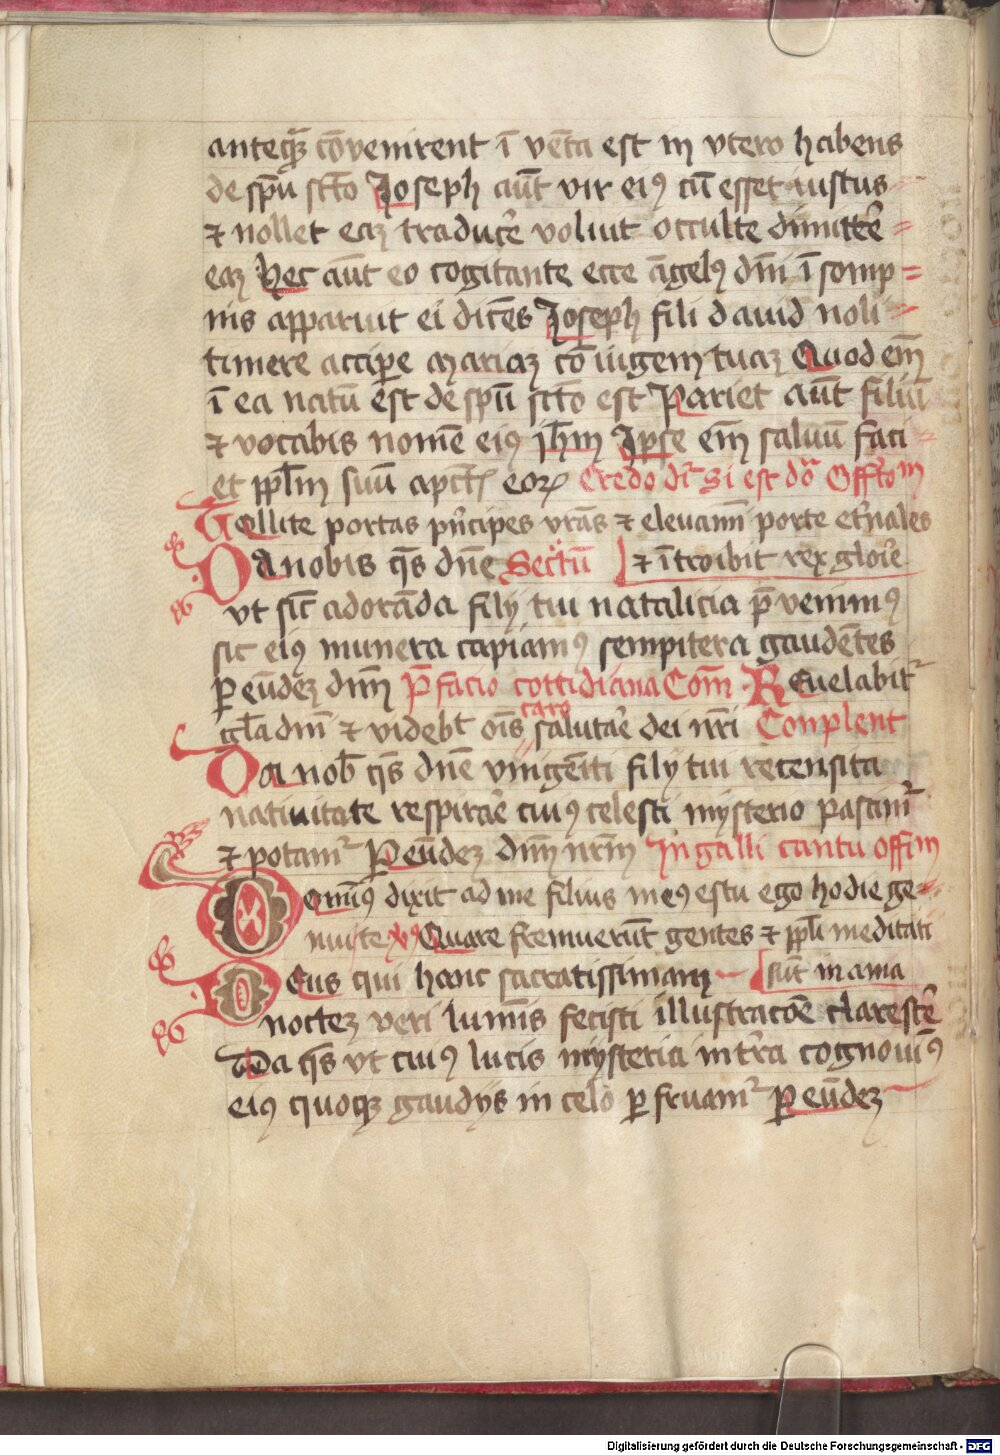 anteqȝ cōvenirent ī vēta est in vtero habens
de spū scto Joseph aūt vir eiꝰ cū esset iustus
⁊ nollet eaȝ traducē voluit occulte dimittē
eaȝ hec aūt eo cogitante ecce āgelꝰ dnī ī somp
nis apparuit ei dicēs Joseph fili david noli
timere accipe mariaȝ cōiugem tuaȝ Quod em̄
ī ea natū est de spū scto est Pariet aūt filiū
⁊ vocabis nomē eiꝰ ihm̄ Ipse em̄ saluū faci
et ppl̄m suū a pcc̄is eoꝝ Credo dr̄ si est do Offtom
Tollite portas pncipes vrās ⁊ elevamī porte et̄nales
Da nobis qs̄ dnē Secr̄tū ⁊ ītroibit rex glorie
vt sic̄ adorāda filij tui natalicia p̄venimꝰ
sic eiꝰ munera capiamꝰ sempitera gaudētes
ꝑ eūdeȝ dnm̄ P̄facio cottidiana Com̄ Revelabit̄
gl̄a dnī ⁊ videbt̄ oīs caro salutaē dei nr̄i Conplent
Da nob̄ qs̄ dnē vnigeīti filij tui recensita
nativitate respiraē cuiꝰ celesti mysterio pascam̄
⁊ potam̄ Per eūdeȝ dnm̄ nrm̄ In galli cantu offim
Dominꝰ dixit ad me filius meꝰ es tu ego hodie ge
nui te Quare fremuerūt gentes ⁊ ppl̄i meditati
Deus qui hanc sacratissimam sūt inania
nocteȝ veri lumīs fecisti illustracōe clarescē
Da qs̄ vt cuiꝰ lucis mysteria in tr̄a cognouimꝰ
eiꝰ quoqȝ gaudijs in celo ꝑfruam̄ ꝑ eūdeȝ
Digitalisierung gefördert durch die Deutsche Forschungsgemeinschaft - DFG